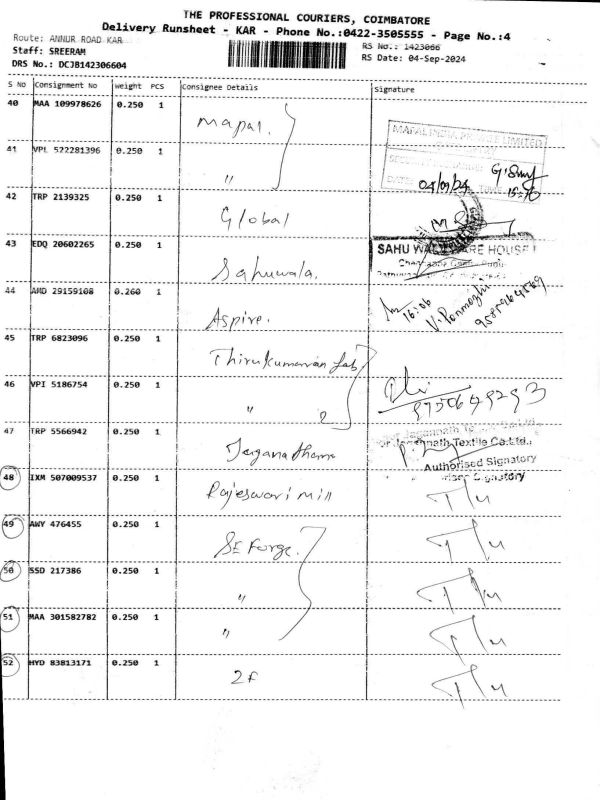 THE PROFESSIONAL COURIERS, COIMBATORE
Delivery Runsheet - KAR - Phone No.:0422-3505555 - Page No.:4
Route: ANNUR ROAD KAR
RS No.: 1423066
Staff: SREERAM
RS Date: 04-Sep-2024
DRS No.: DCJB142306604
S No Consignment No Weight PCS Consignee Details Signature
40 MAA 109978626 0.250 1 Mapal.
MAPAL INDIA PRIVATE LIMITED
41 VPL 522281396 0.250 1 "
04/09/24
42 TRP 2139325 0.250 1 Global
43 EDQ 20602265 0.250 1 Sahuwala.
SAHU WALA WARE HOUSE
44 AMD 29159108 0.260 1 Aspire.
16:06
V. Ponmozhi
45 TRP 6823096 0.250 1 Thirukumaran Lab
46 VPI 5186754 0.250 1 " 2
9750649293
47 TRP 5566942 0.250 1 Jaganatham
For Jagannath Textile Co.Ltd.,
Authorised Signatory
48 IXM 507009537 0.250 1 Rajeswari Mill
49 AWY 476455 0.250 1 SE Forge.
50 SSD 217386 0.250 1 "
51 MAA 301582782 0.250 1 "
52 HYD 83813171 0.250 1 ZF